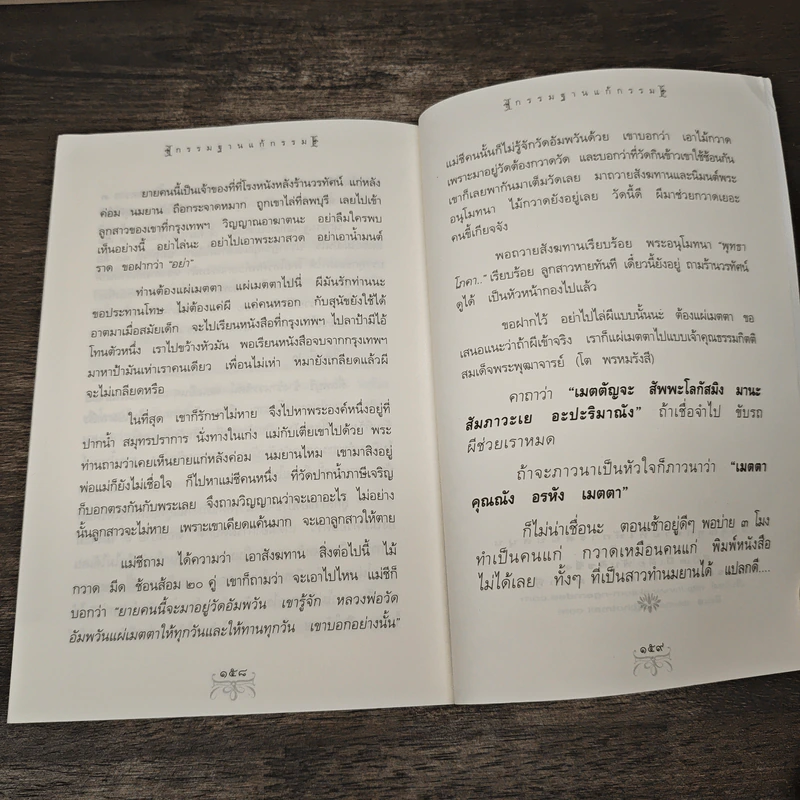 กรรมฐานแก้กรรม
ยายคนนี้เป็นเจ้าของที่ที่โรงหนังหลังร้านวรทัศน์ แก่หลัง
ค่อม นมยาน ถือกระจาดหมาก ถูกเขาไล่ที่ลพบุรี เลยไปเข้า
ลูกสาวของเขาที่กรุงเทพฯ วิญญาณอาฆาตนะ อย่าลืมใครพบ
เห็นอย่างนี้ อย่าไล่นะ อย่าไปเอาพระมาสวด อย่าเอาน้ำมนต์
ราด ขอฝากว่า "อย่า"
ท่านต้องแผ่เมตตา เมตตาไปนี่ ผีมันรักท่านนะ
ขอประทานโทษ ไม่ต้องแค่ผี แค่คนหรอก กับสุนัขยังใช้ได้
อาตมาเมื่อสมัยเด็ก จะไปเรียนหนังสือที่กรุงเทพฯ ไปลาป้ามีไอ้
โทนตัวหนึ่ง เราไปขว้างหัวมัน พอเรียนหนังสือจบจากกรุงเทพฯ
มาหาป้ามันเห่าเราคนเดียว เพื่อนไม่เห่า หมายังเกลียดแล้วผี
จะไม่เกลียดหรือ
ในที่สุด เขาก็รักษาไม่หาย จึงไปหาพระองค์หนึ่งอยู่ที่
ปากน้ำ สมุทรปราการ นั่งทางในเก่ง แม่กับเตี่ยเขาไปด้วย พระ
ท่านถามว่าเคยเห็นยายแก่หลังค่อม นมยานไหม เขามาสิงอยู่
พ่อแม่ก็ยังไม่เชื่อใจ ก็ไปหาแม่ชีคนหนึ่ง ที่วัดปากน้ำภาษีเจริญ
ก็บอกตรงกันกับพระเลย จึงถามวิญญาณว่าจะเอาอะไร ไม่อย่าง
นั้นลูกสาวจะไม่หาย เพราะเขาเคียดแค้นมาก จะเอาลูกสาวให้ตาย
แม่ชีถาม ได้ความว่า เอาสังฆทาน สิ่งต่อไปนี้ ไม้
กวาด มีด ช้อนส้อม ๒๐ คู่ เขาก็ถามว่า จะเอาไปไหน แม่ชีก็
บอกว่า "ยายคนนี้จะมาอยู่วัดอัมพวัน เขารู้จัก หลวงพ่อวัด
อัมพวันแผ่เมตตาให้ทุกวันและให้ทานทุกวัน เขาบอกอย่างนั้น"
๑๕๘
กรรมฐานแก้กรรม
แม่ชีคนนั้นก็ไม่รู้จักวัดอัมพวันด้วย เขาบอกว่า เอาไม้กวาด
เพราะมาอยู่วัดต้องกวาดวัด และบอกว่าที่วัดกินข้าวเขาใช้ช้อนกัน
เขาก็เลยพากันมาเต็มวัดเลย มาถวายสังฆทานและนิมนต์พระ
อนุโมทนา ไม้กวาดยังอยู่เลย วัดนี้ดี ผีมาช่วยกวาดเยอะ
คนขี้เกียจจัง
พอถวายสังฆทานเรียบร้อย พระอนุโมทนา "พุทธา
โภคา.." เรียบร้อย ลูกสาวหายทันที เดี๋ยวนี้ยังอยู่ ถามร้านวรทัศน์
ดูได้ เป็นหัวหน้ากองไปแล้ว
ขอฝากไว้ อย่าไปไล่ผีแบบนั้นนะ ต้องแผ่เมตตา ขอ
เสนอแนะว่าถ้าผีเข้าจริง เราก็แผ่เมตตาไปแบบเจ้าคุณธรรมกิตติ
สมเด็จพระพุฒาจารย์ (โต พรหมรังสี)
คาถาว่า "เมตตัญจะ สัพพะโลกัสมิง มานะ
สัมภาวะเย อะปะริมาณัง" ถ้าเชื่อจำไป ขับรถ
ผีช่วยเราหมด
ถ้าจะภาวนาเป็นหัวใจก็ภาวนาว่า "เมตตา
คุณณัง อรหัง เมตตา"
ก็ไม่น่าเชื่อนะ ตอนเช้าอยู่ดีๆ พอบ่าย ๓ โมง
ทำเป็นคนแก่ กวาดเหมือนคนแก่ พิมพ์หนังสือ
ไม่ได้เลย ทั้งๆ ที่เป็นสาวทำนมยานได้ แปลกดี....
๑๕๙